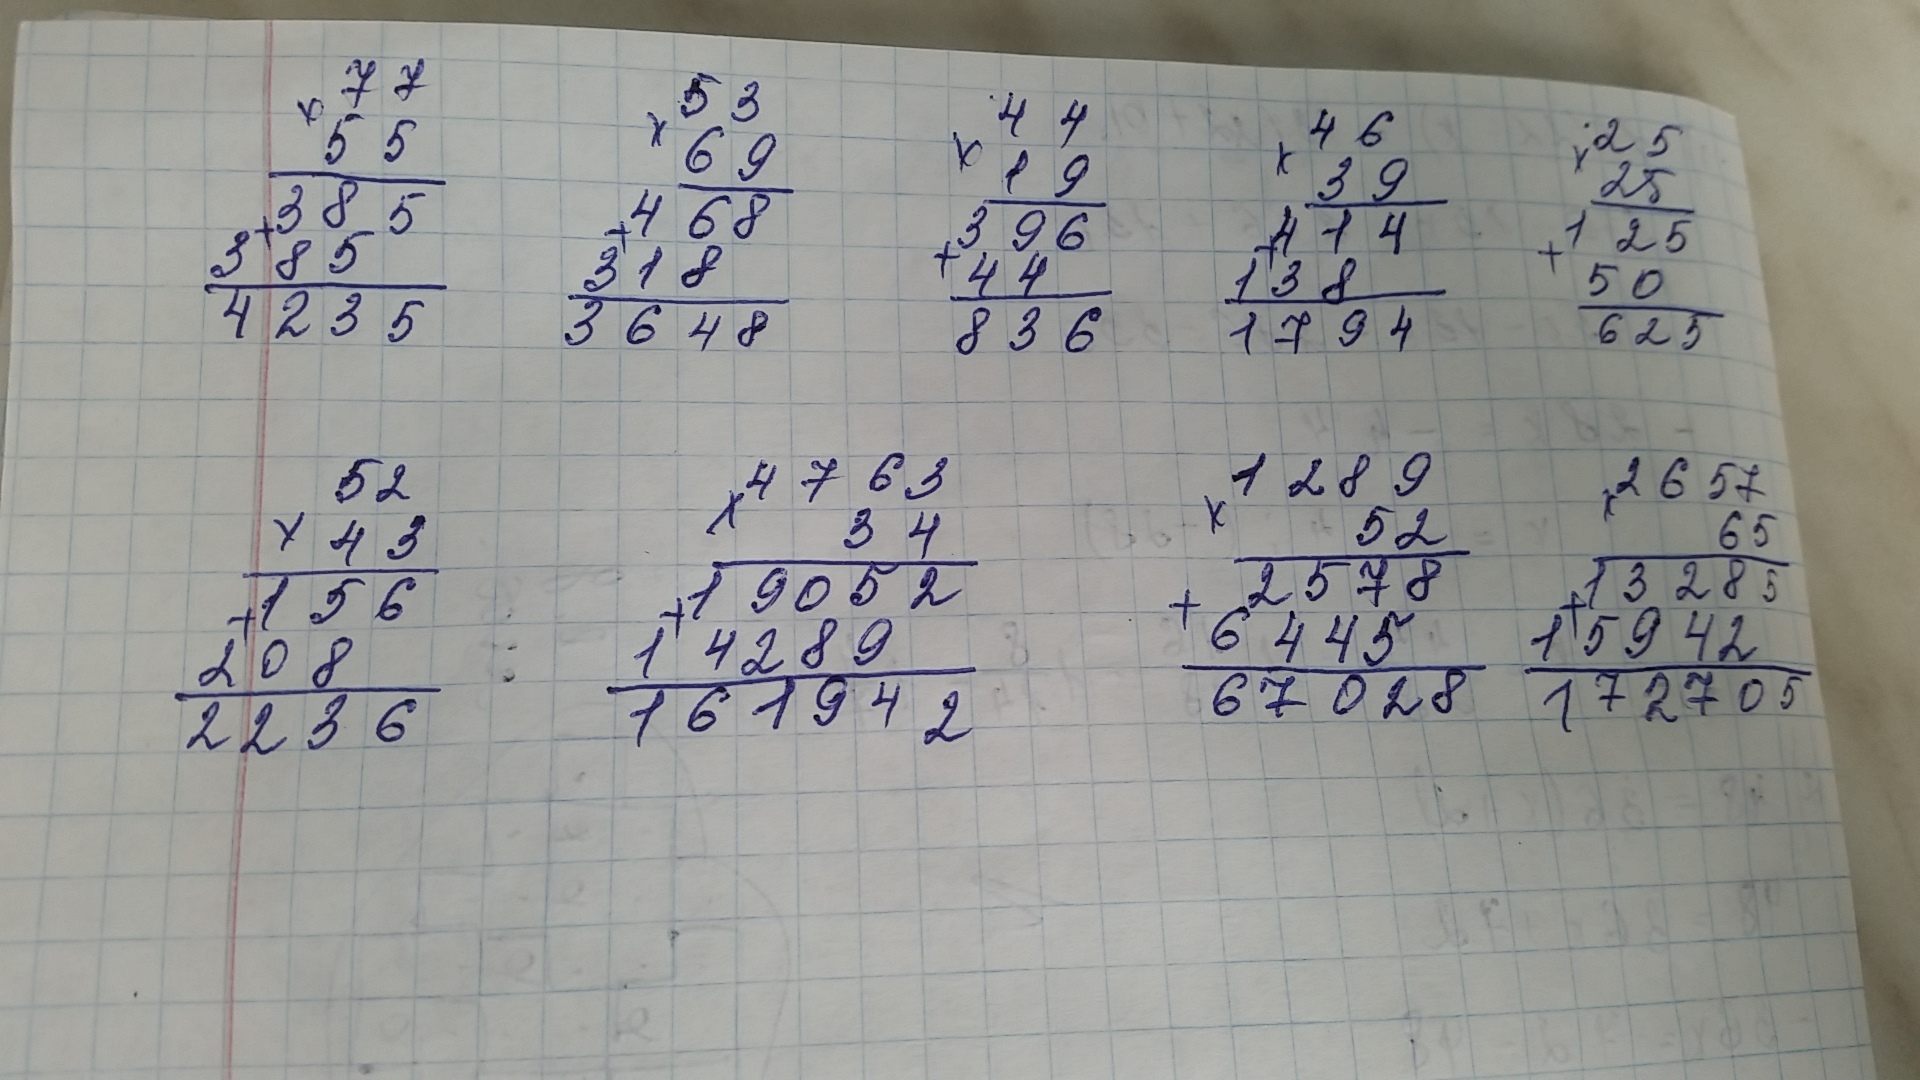 77
× 55
+ 385
385
4235
53
× 69
+ 468
318
3648
44
× 19
396
+ 44
836
46
× 39
+ 414
138
1794
25
× 25
125
+ 50
625
52
× 43
+ 156
208
2236
4763
× 34
+ 19052
14289
161942
1289
× 52
2578
+ 6445
67028
2657
× 65
+ 13285
15942
172705